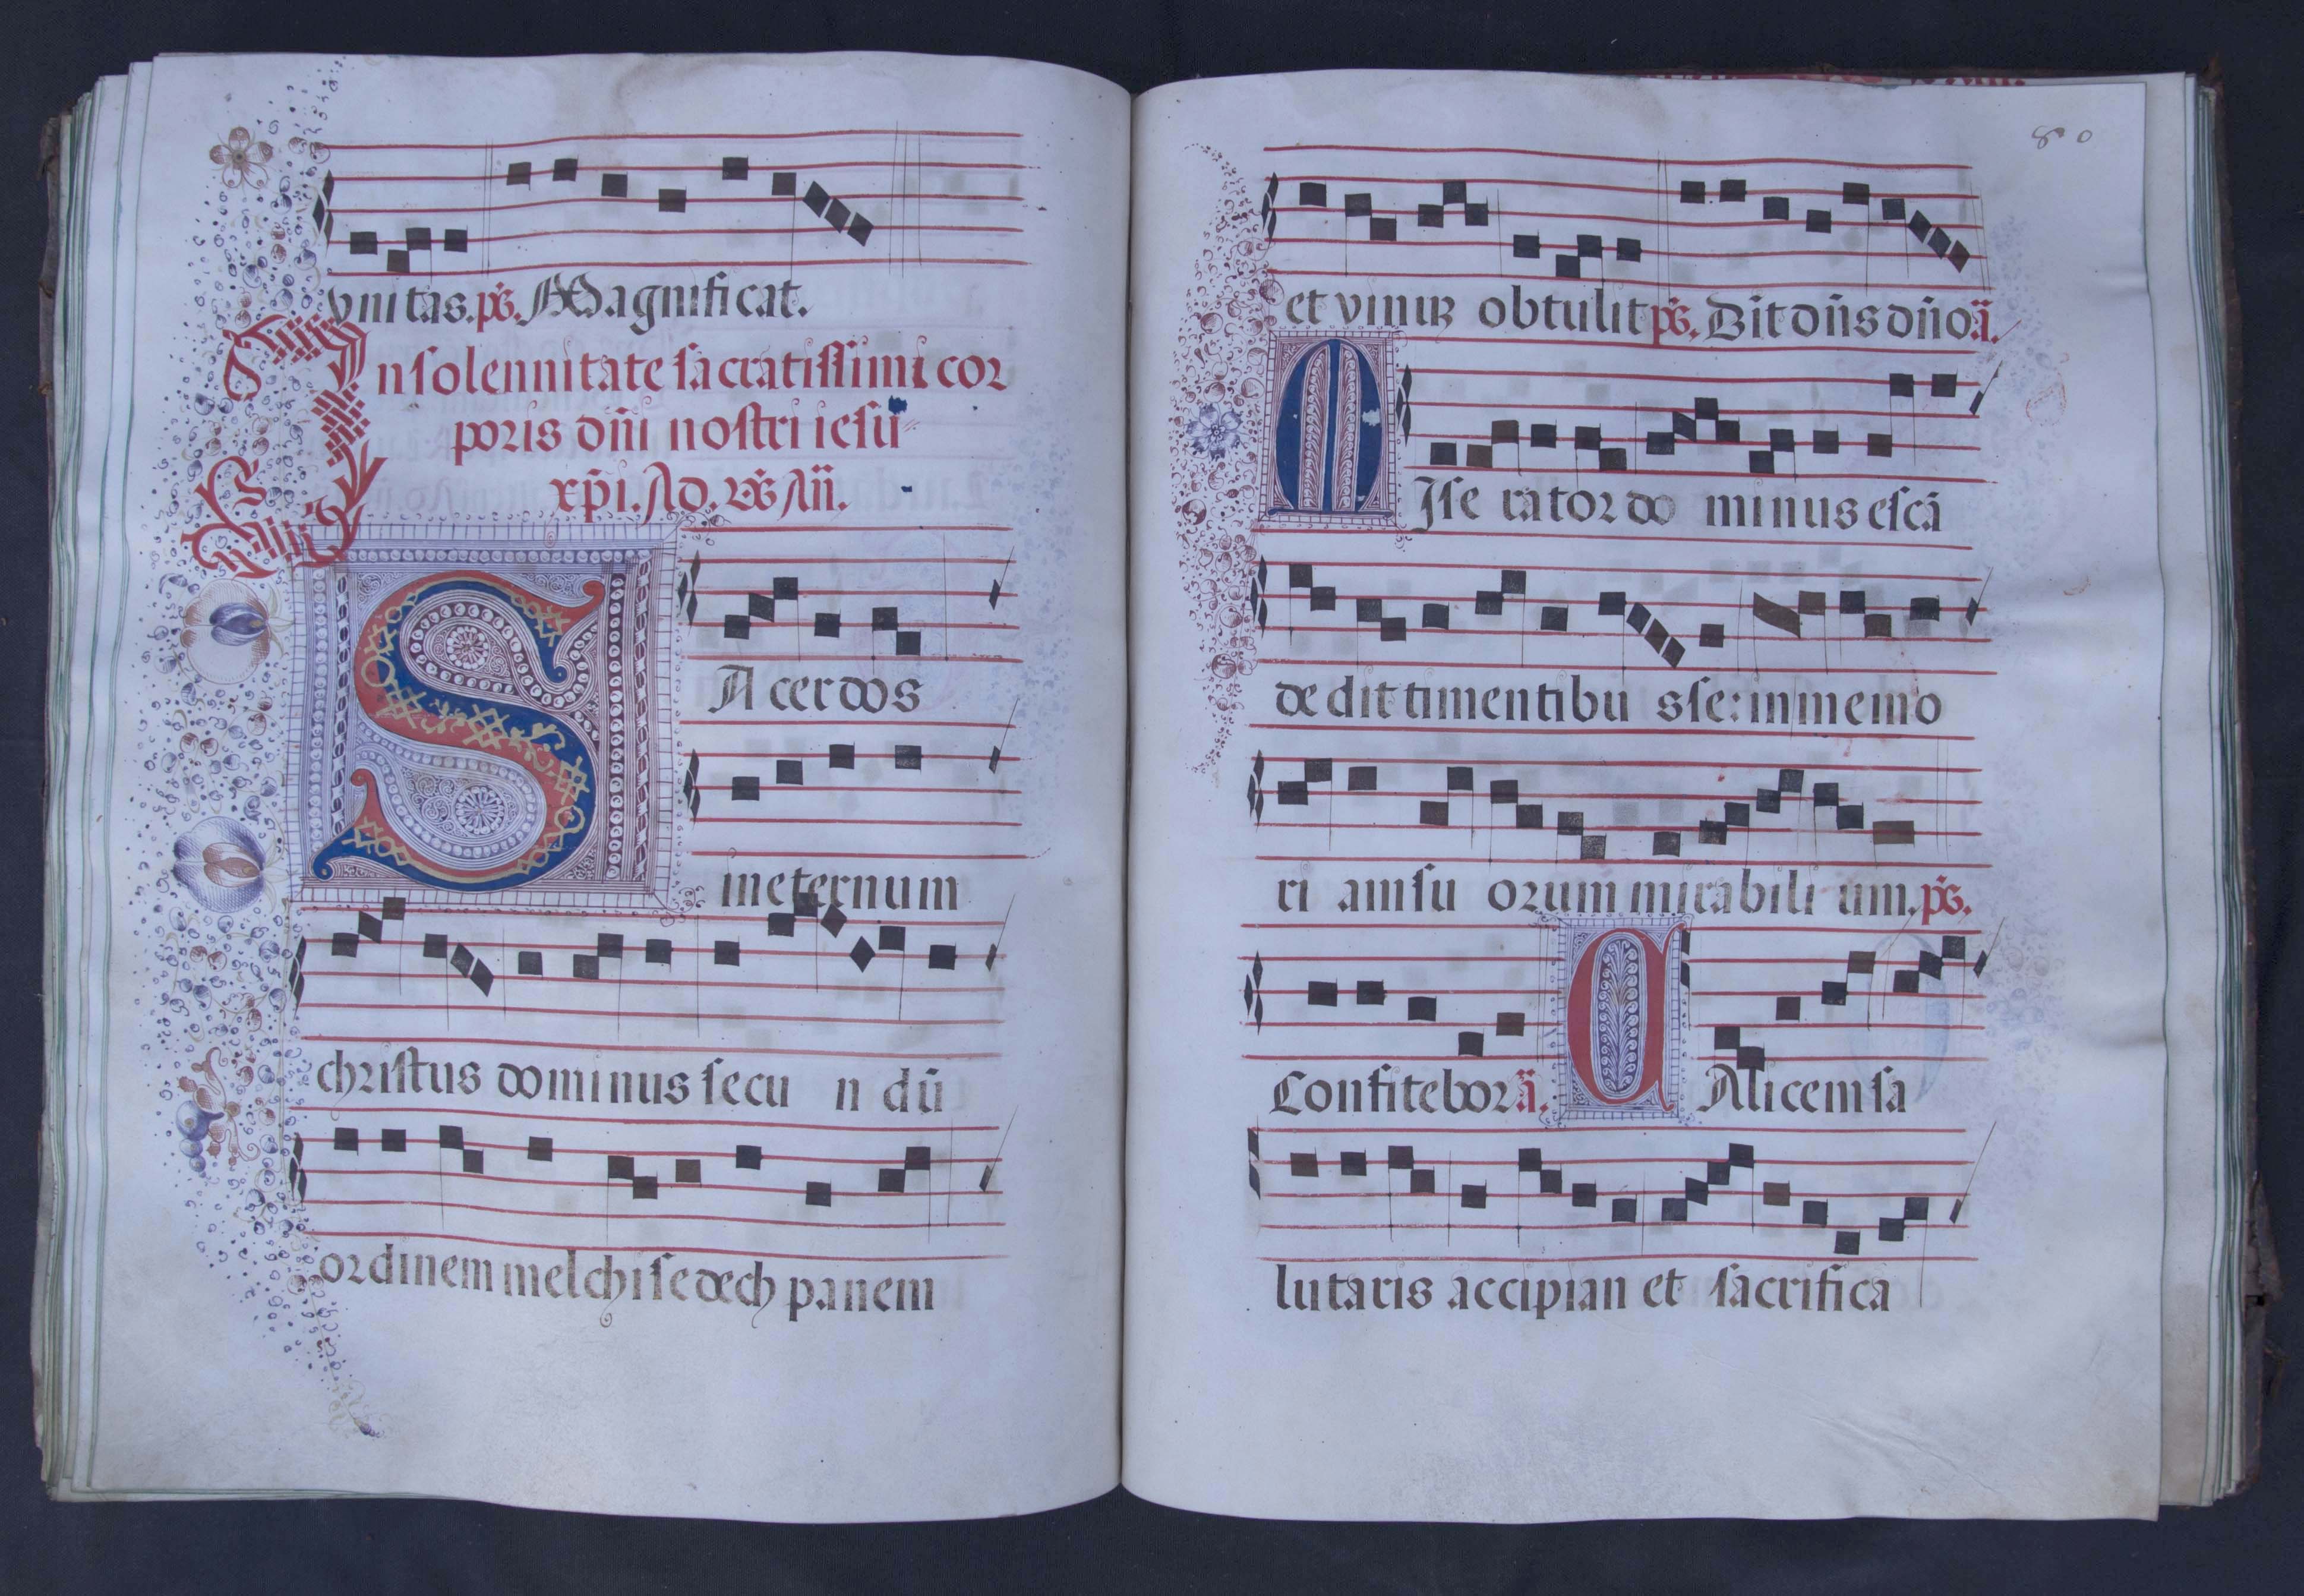 vnitas. ps̃. Magnificat.
In solennitate sacratissimi cor
poris dñi nostri iesu
xp̃i. Ad. vs̃ Añ.
SAcerdos
ineternum
christus dominus secu n dũ
ordinem melchisedech panem
80
et vinum obtulit ps̃. Dit dñs dño ã.
MIse rator do minus escã
de dit timentibu s se: in memo
ri am su orum mirabili um. ps̃.
Confitebor ã. CAlicem sa
lutaris accipian et sacrifica